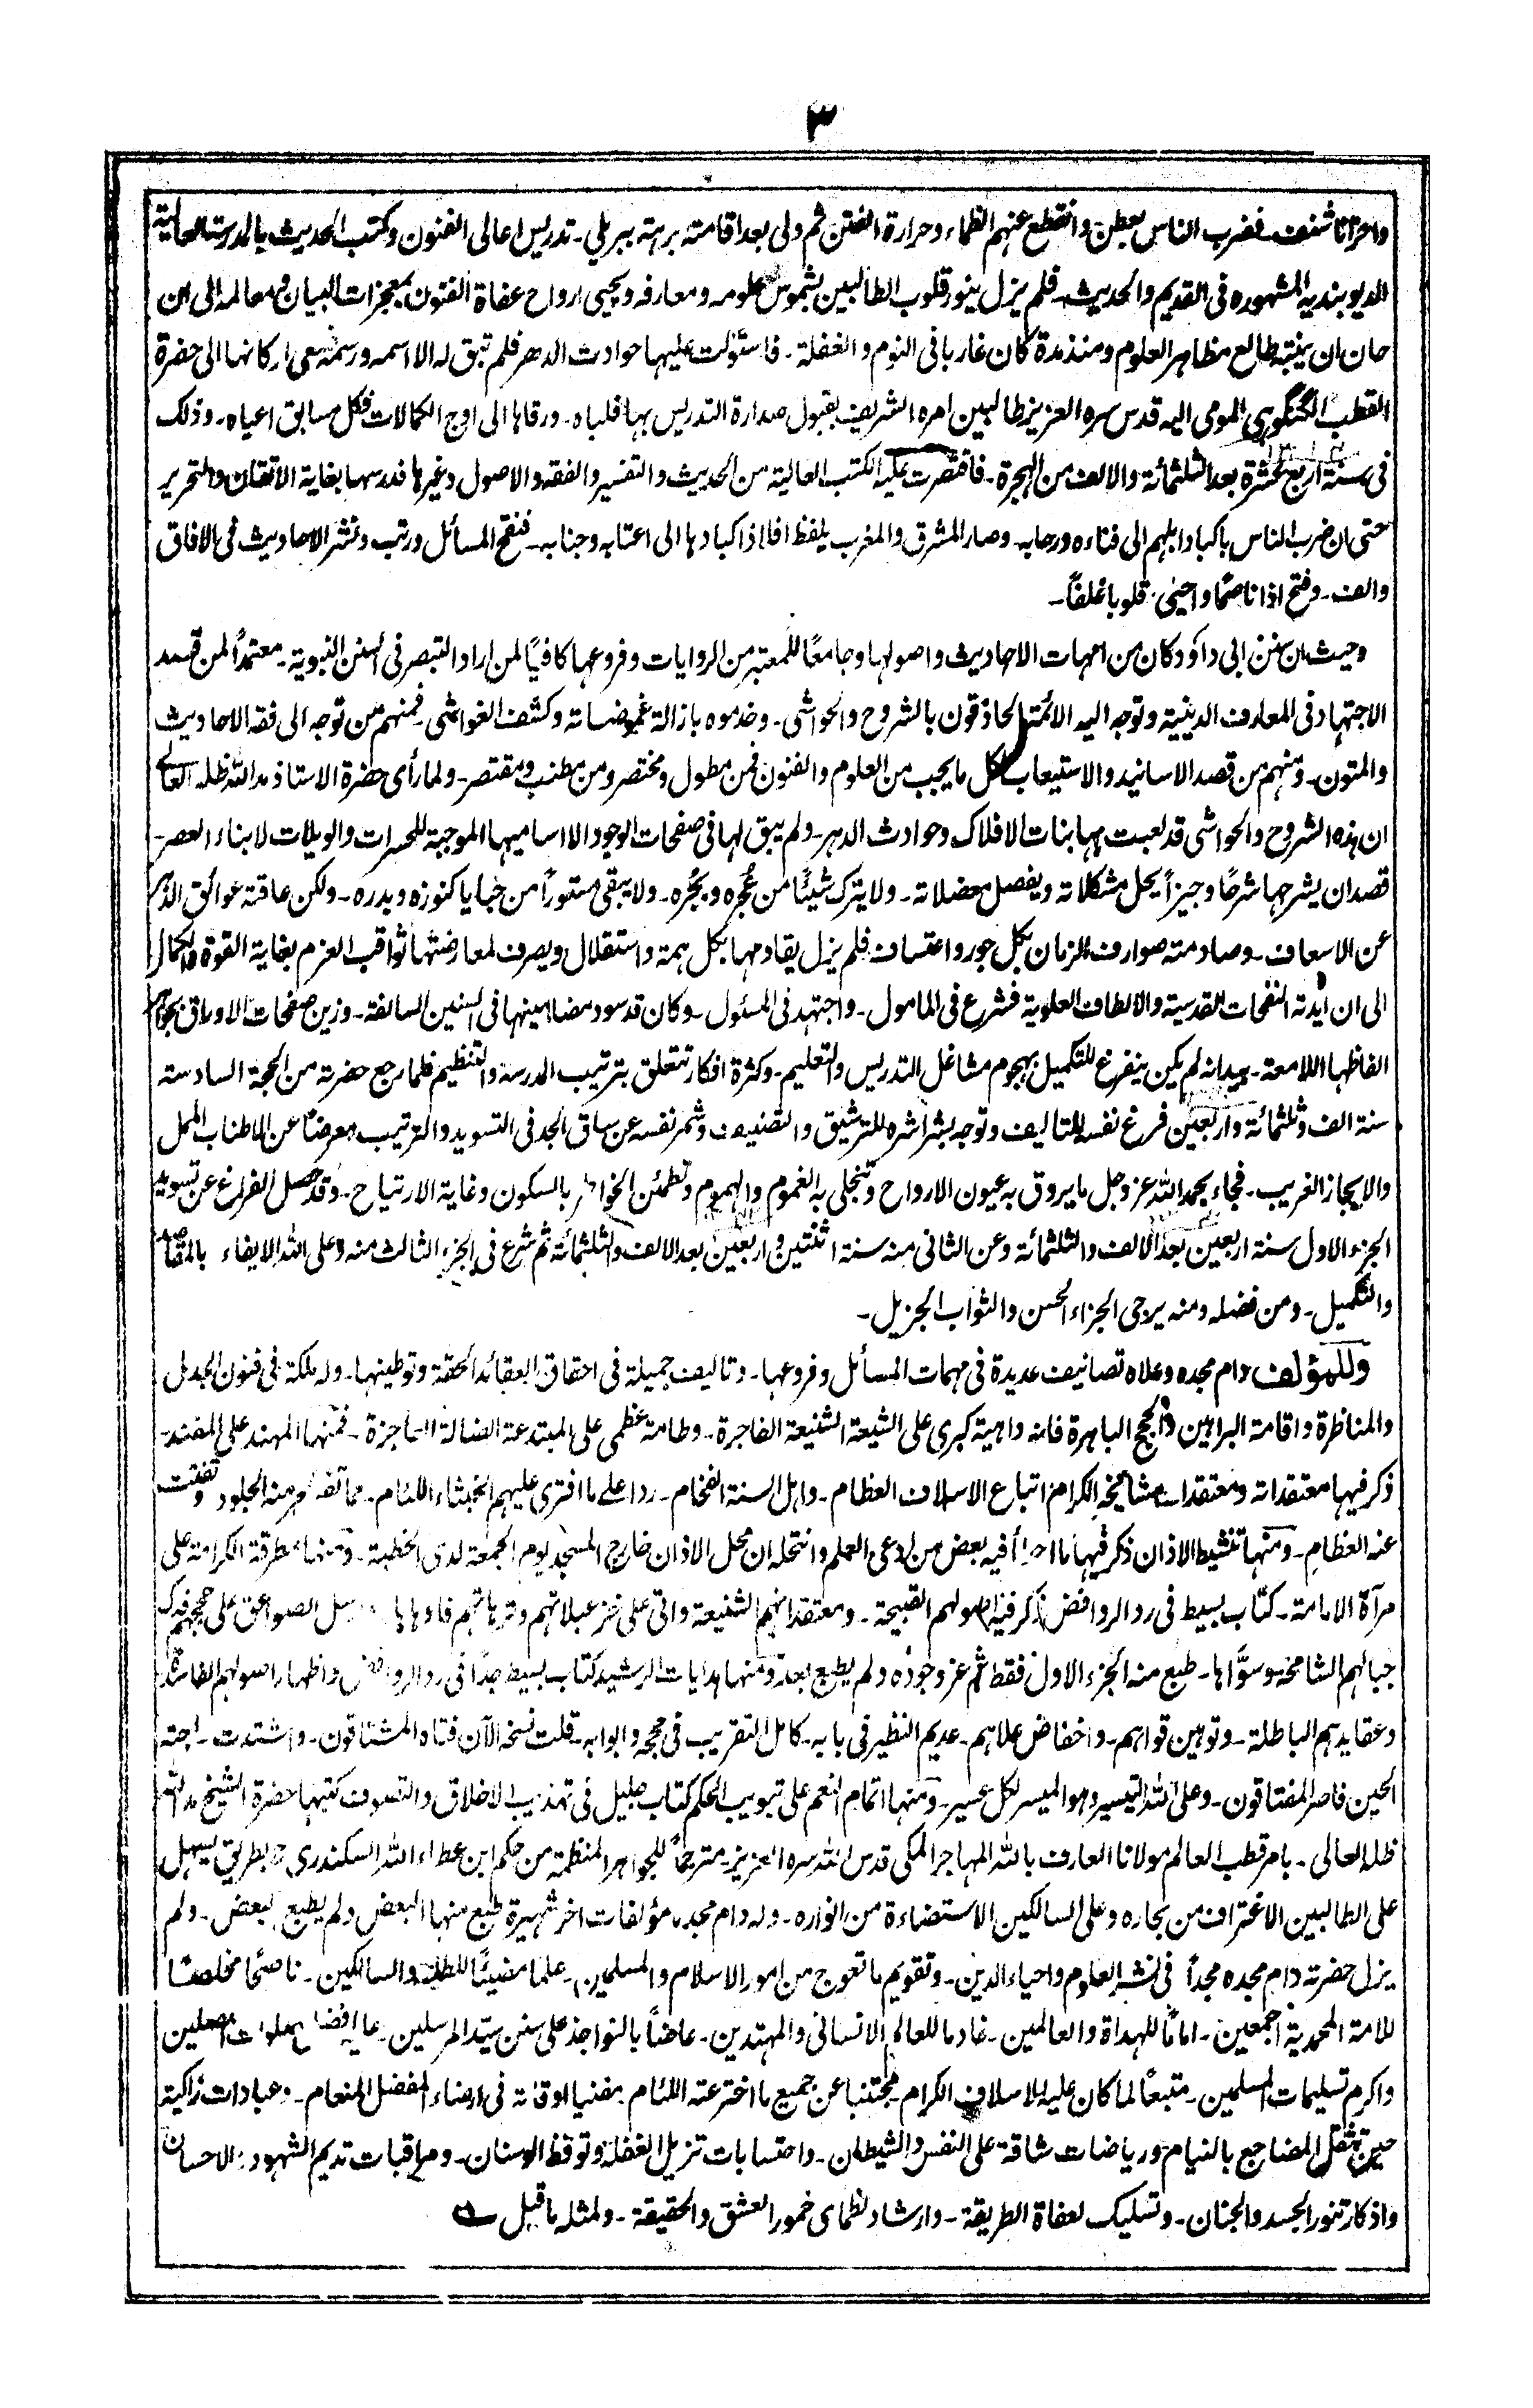 ٣
واحزانا شغف فضرب الناس بعطن وانقطع عنهم الظماء وحرارة الفتن ثم ولى بعد اقامته برهته ببريلي ـ تدريس اعالى الفنون وكتب الحديث بالمدرسة العالية
الديوبنديه المشهوره فى القديم والحديث ـ فلم يزل ينور قلوب الطالبين بشموس علومه ومعارفه ويحيى ارواح عفاة الفنون بمعجزات البيان ومعالمه الى ان
حان ان ينتبه طالع مظاهر العلوم ومنذ مدة كان غاربا فى النوم والغفلة ـ فاستولت عليها حوادث الدهر فلم تبق له الا اسمه ورسمه فسعى اركانها الى حضرة
القطب الگنگوهي المومى اليه قدس سره العزيز طالبين امره الشريف بقبول صدارة التدريس بها فلباه ـ ورقاها الى اوج الكمالات فكل مسابق اعياه ـ وذلك
فى سنة اربع عشرة بعد الثلثمائة والالف من الهجرة ـ فاقتصرت عليه الكتب العالية من الحديث والتفسير والفقه والاصول وغيرها فدرسها بغاية الاتقان والتحرير
حتى ان ضرب الناس باكباد ابلهم الى فناءه ورحابه ـ وصار المشرق والمغرب يلفظ افلاذ اكبادها الى اعتابه وجنابه ـ فنقح المسائل ورتب ونشر الاحاديث فى الآفاق
والف ـ وفتح اذانا صمًا واحيى قلوبا غلفًا ـ
وحيث ان سنن ابى داؤد كان من امهات الاحاديث واصولها وجامعًا للمعتبر من الروايات وفروعها كافيًا لمن اراد التبصر فى السنن النبوية ـ معتمدًا لمن قصد
الاجتهاد فى المعارف الدينية وتوجه اليه الائمة الحاذقون بالشروح والحواشى ـ وخدموه بازالة غموضاته وكشف الغواشى ـ فمنهم من توجه الى فقه الاحاديث
والمتون ـ ومنهم من قصد الاسانيد والاستيعاب لكل مايجب من العلوم والفنون فمن مطول ومختصر ومن مطنب ومقتصر ـ ولما رأى حضرة الاستاذ مد الله ظله العالى
ان هذه الشروح والحواشى قد لعبت بها بنات الافلاك وحوادث الدهر ـ ولم يبق لها فى صفحات الوجود الا اساميها الموجبة للحسرات والويلات لابناء العصر ـ
قصد ان يشرحها شرحًا وجيزًا يحل مشكلاته ويفصل معضلاته ـ ولا يترك شيئًا من عُجره وبجُره ـ ولا يبقى مستورًا من خبايا كنوزه وبدره ـ ولكن عاقته عوائق الدهر
عن الاسعاف ـ وصادمته صوارف الزمان بكل جور واعتساف فلم يزل يقاومها بكل همة واستقلال ويصرف لمعارضتها ثواقب العزم بغاية القوة والكمال
الى ان ايدته النفحات القدسية والالطاف العلوية فشرع فى المامول ـ واجتهد فى المسئول ـ وكان قد سود مضامينها فى السنين السالفة ـ وزين صفحات الاوراق بجواهر
الفاظها اللامعة ـ بيد انه لم يكن يتفرغ للتكميل بهجوم مشاغل التدريس والتعليم ـ وكثرة افكار تتعلق بترتيب المدرسة والتنظيم فلما رجع حضرته من الحجة السادسة
سنة الف وثلثمائة واربعين فرغ نفسه للتاليف وتوجه بشراشره للترشيق والتصنيف وشمر نفسه عن ساق الجد فى التسويد والترتيب معرضًا عن الاطناب الممل
والايجاز الغريب ـ فجاء بحمد الله عز وجل مايروق به عيون الارواح وتنجلى به الغموم والهموم وتطمئن الخواطر بالسكون وغاية الارتياح ـ وقد حصل الفراغ عن تسويد
الجزء الاول سنة اربعين بعد الالف والثلثمائة وعن الثانى منه سنة اثنتين واربعين بعد الالف والثلثمائة ثم شرع فى الجزء الثالث منه وعلى الله الايفاء بالمقاصد
والتكميل ـ ومن فضله ومنه يرجى الجزاء الحسن والثواب الجزيل ـ
وللمؤلف دام مجده وعلاه تصانيف عديدة فى مهمات المسائل وفروعها ـ وتاليف جميلة فى احقاق العقائد الحقة وتوطينها ـ وله ملكة فى فنون الجدل
والمناظرة واقامة البراهين والحجج الباهرة فانه داهية كبرى على الشيعة الشنيعة الفاجرة ـ وطامة عظمى على المبتدعة الضالة العاجزة ـ فمنها المهند على المفند ـ
ذكر فيها معتقداته ومعتقدات مشائخه الكرام اتباع الاسلاف العظام ـ واهل السنة الفخام ـ ردا على ما افترى عليهم الخبثاء اللئام ـ مما تقشعر منه الجلود وتفتت
عنه العظام ـ ومنها تنشيط الاذان ذكر فيها ما اخطأ فيه بعض من ادعى العلم وانتحله ان محل الاذان خارج المسجد يوم الجمعة لدى الخطبة ـ ومنها مطرقة الكرامة على
مرآة الامامة ـ كتاب بسيط فى رد الروافض ذكر فيه اصولهم القبيحة ـ ومعتقداتهم الشنيعة واتى على خزعبلاتهم وترهاتهم فاوهاها وارسل الصواعق على حججهم فدك
جبالهم الشامخة وسوَّاها ـ طبع منه الجزء الاول فقط ثم عز وجوده ولم يطبع بعد ومنها هدايات الرشيد كتاب بسيط جدًا فى رد الروافض واظهار اصولهم الفاسدة
وعقايدهم الباطلة ـ وتوهين قواهم ـ واخفاض علاهم ـ عديم النظير فى بابه ـ كامل التقريب فى حججه وابوابه ـ قلت نسخه الآن فتاه المشتاقون ـ واشتدت حاجته
الحين فاصر المفتاقون ـ وعلى الله التيسير وهو الميسر لكل عسير ـ ومنها اتمام النعم على تبويب الحكم كتاب جليل فى تهذيب الاخلاق والتصوف كتبها حضرة الشيخ مد الله
ظله العالى ـ بامر قطب العالم مولانا العارف بالله المهاجر المكى قدس الله سره العزيز مترجمًا للجواهر المنظمة من حكم ابن عطاء الله السكندرى بطريق يسهل
على الطالبين الاغتراف من بحاره وعلى السالكين الاستضاءة من انواره ـ وله دام مجده مؤلفات اخر شهيرة طبع منها البعض ولم يطبع البعض ـ ولم
يزل حضرته دام مجده مجدًا فى نشر العلوم واحياء الدين ـ وتقويم ماتعوج من امور الاسلام والمسلمين ـ علما مضيئًا للطلبة والسالكين ـ ناصحًا مخلصًا
للامة المحمدية اجمعين ـ امامًا للهداة والعالمين ـ خادما للعالم الانسانى والمهتدين ـ عاضًا بالنواجذ على سنن سيّد المرسلين ـ عليه افضل صلوات المصلين
واكرم تسليمات المسلمين ـ متبعًا لما كان عليه الاسلاف الكرام ـ مجتنبا عن جميع ما اخترعته اللئام مفنيا اوقاته فى ارضاء المفضل المنعام ـ وعبادات زاكية
حين تثقل المضاجع بالنيام ورياضات شاقة على النفس والشيطان ـ واحتسابات تزيل الغفلة وتوقظ الوسنان ـ ومراقبات تديم الشهود الاحسان
واذكار تنور الجسد والجنان ـ وتسليك لعفاة الطريقة ـ وارشاد لظماى خمور العشق والحقيقة ـ ولمثله ماقيل